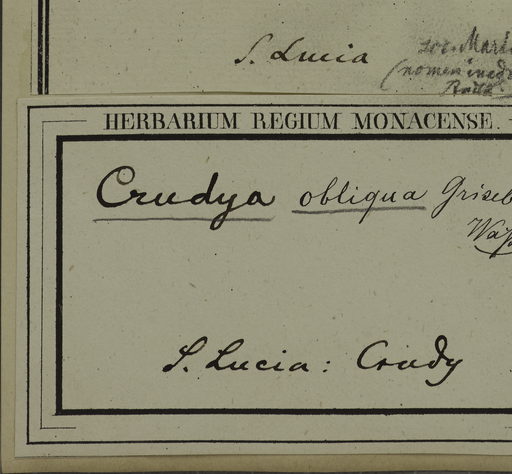 S. Lucia
(nomen
HERBARIUM REGIUM MONACENSE.
Crudya obliqua Griseb
S. Lucia: Crudy